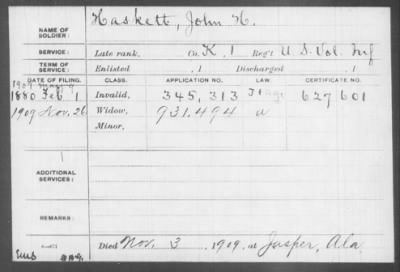 NAME OF SOLDIER: Haskett, John H.
SERVICE: Late rank, Co. K, 1 Reg't U. S. Vol. Inf
TERM OF SERVICE: Enlisted , 1 Discharged , 1
DATE OF FILING. CLASS. APPLICATION NO. LAW CERTIFICATE NO.
1907
1880 Feb 1 Invalid, 345,313 627 601
1909 Nov. 26 Widow, 931.494
Minor,
ADDITIONAL SERVICES:
REMARKS:
Died Nov. 3 1909, at Jasper, Ala